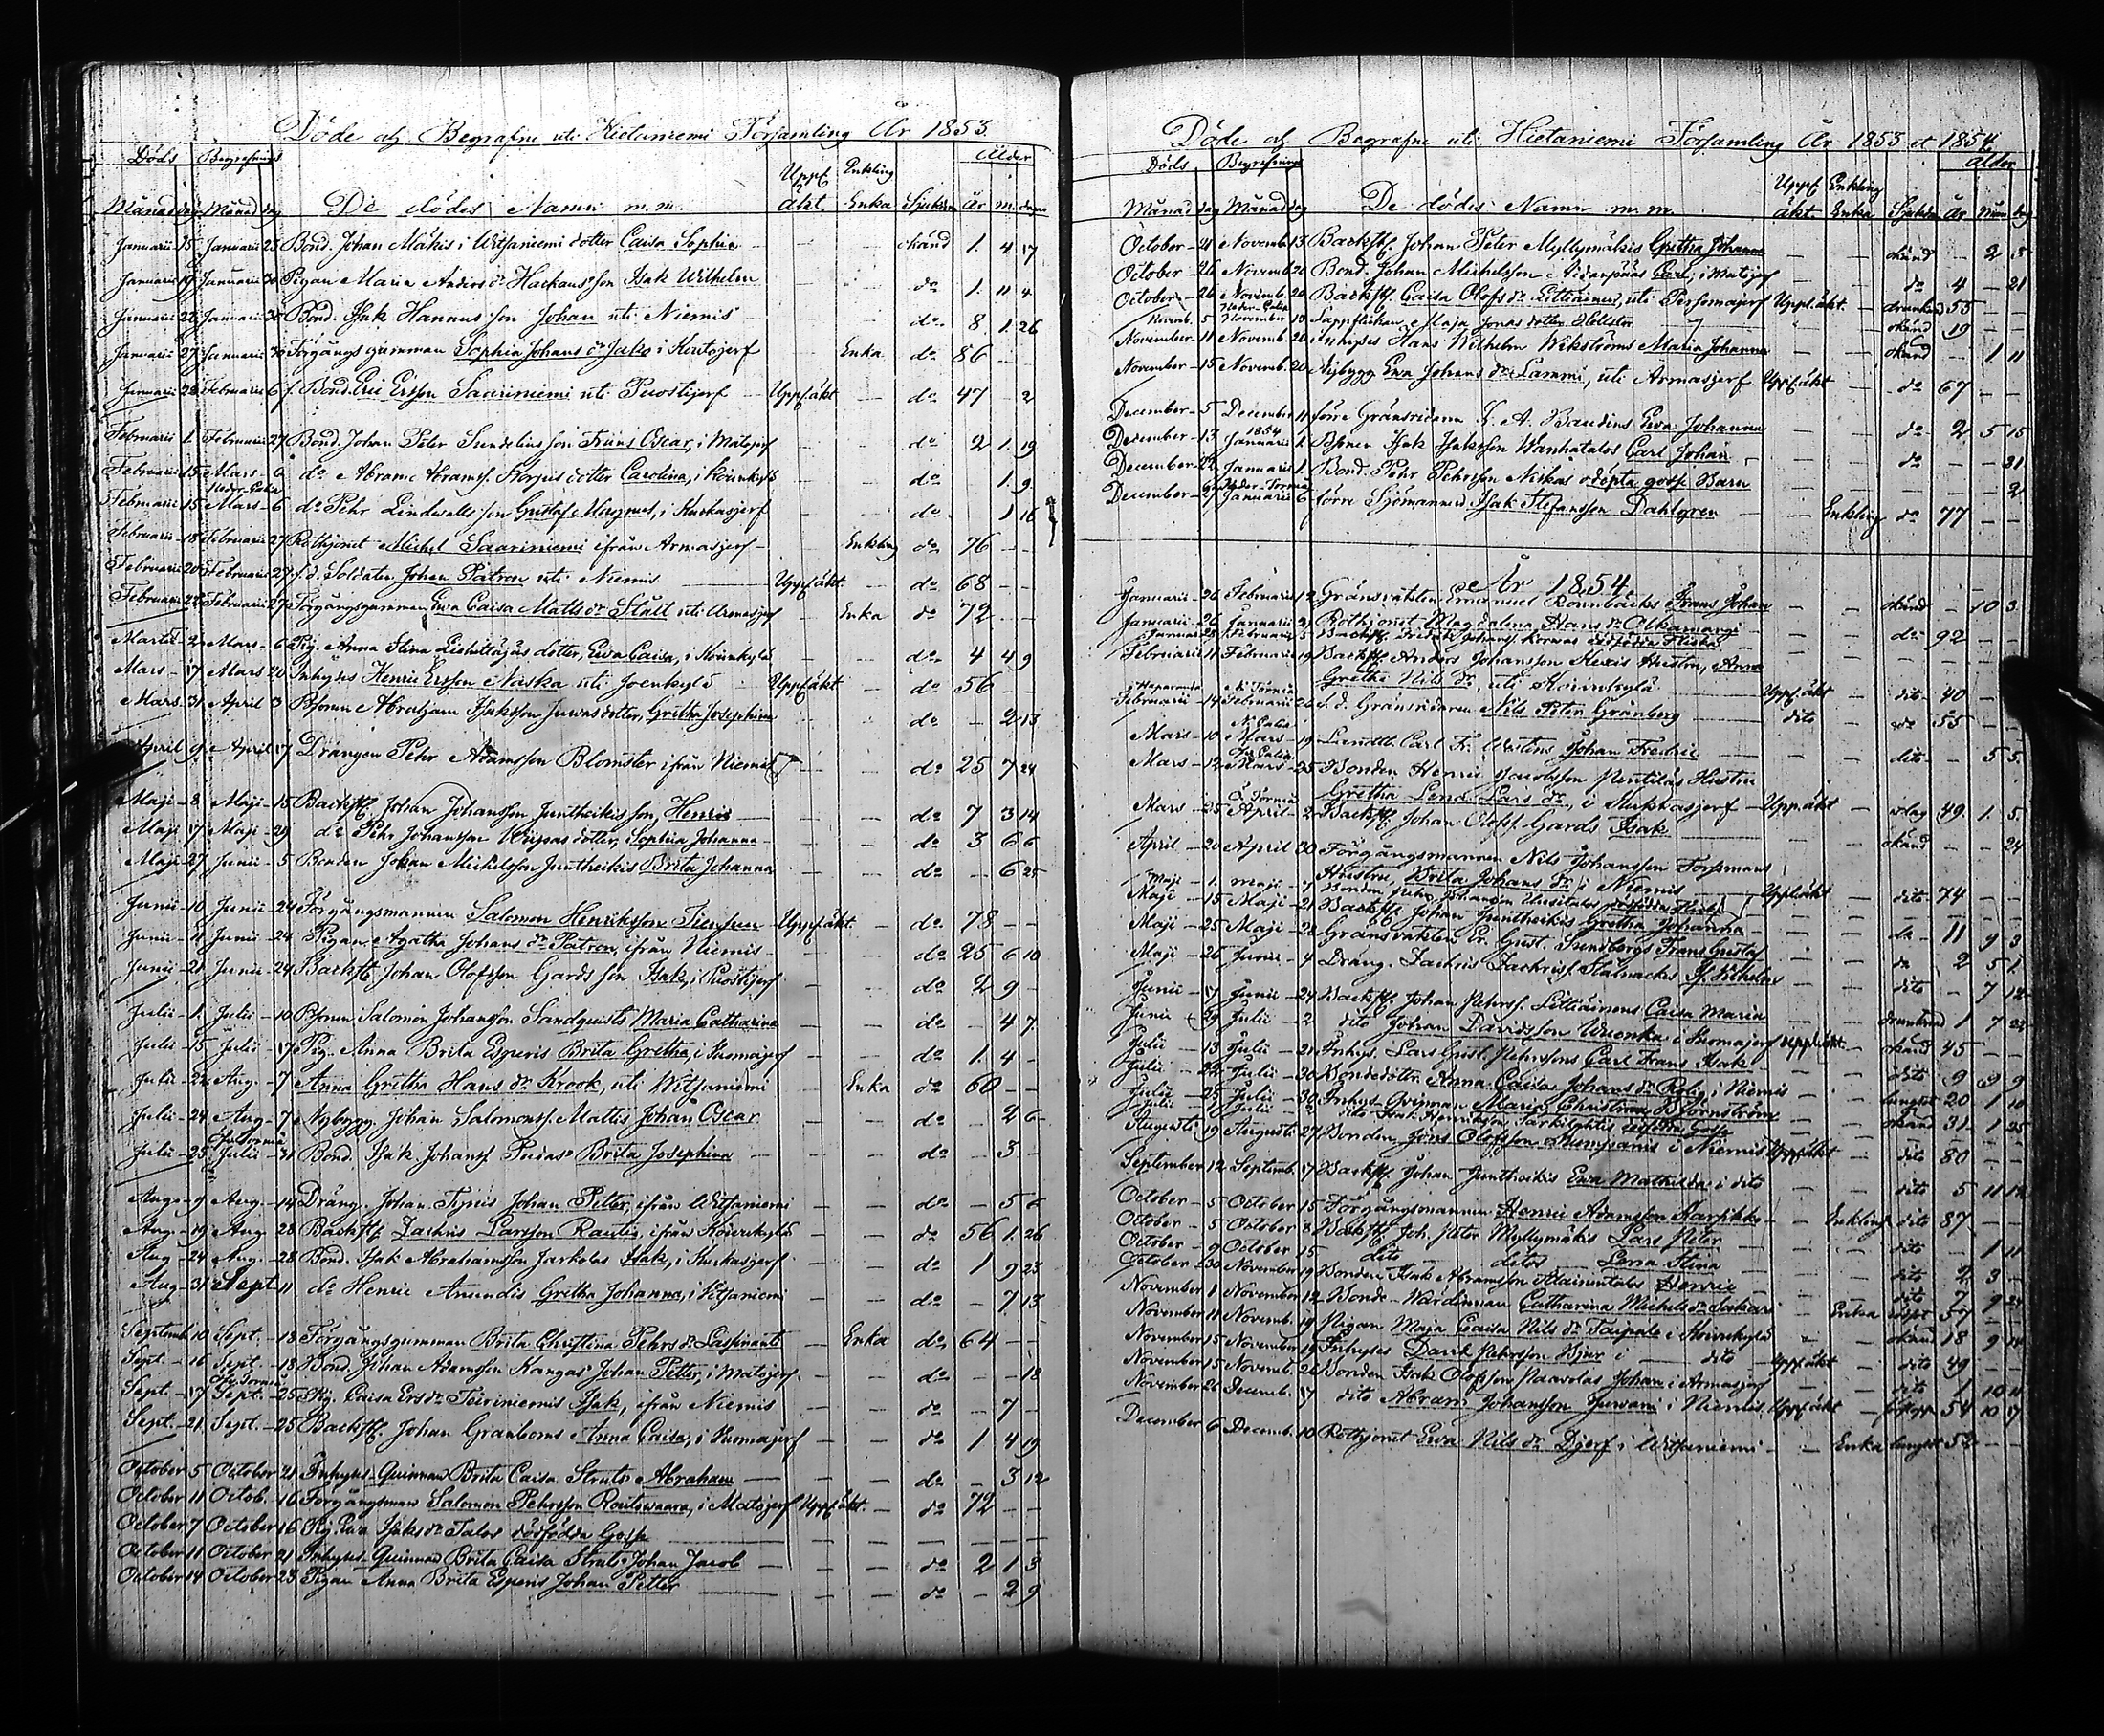 Döde och Begrafne uti Hietaniemi Församling År 1853.
Döds Begrafnings Uppf. Enkling Ålder
Månad dag Månad dag De dödes Namn m.m. äkt. Enka Sjukdom år m. dagar
Januarii 15 Januarii 23 Bond. Johan Mäkis i Witsaniemi dotter Caisa Sophia — — okänd 1. 4 17
Januarii 19 Januarii 30 Pigan Maria Anders dr Hackaus son Isak Wilhelm — — do 1. 11 4
Januarii 22 Januarii 30 Bond. Isak Hannus son Johan uti Niemis — — do 8 1. 26
Januarii 27 Januarii 30 Förgångsgumman Sophia Johans dr Jako i Koutojerf Enka do 86 — —
Januarii 28 Februarii 6 f. Bond. Eric Ersson Saariniemi uti Puostijerf — Uppf. äkt — do 47 — 2
Februarii 1. Februarii 27 Bond. Johan Peter Sundelins son Frans Oscar, i Matojerf do 2 1. 19
Februarii 15 Mars 6 do Abram Abramss. Korpis dotter Carolina, i Koivukylä do 1. 9
Neder Calix
Februarii 15 Mars 6 do Pehr Lindwalls son Gustaf Magnus, i Kuckasjerf do 1 16
Februarii 18 Februarii 27 Rothjonet Michel Saariniemi ifrån Armasjerf — Enkling do 76 — —
Februarii 20 Februarii 27 f.d. Soldaten Johan Patron uti Niemis — Uppf. äkt. — do 68 — —
Februarii 22 Februarii 27 Förgångsgumman Ewa Caisa Matts dr Stålt uti Armasjerf — Enka do 72 — —
Martii 2 Mars 6 Pig. Anna Stina dotter, Ewa Caisa, i Koivukylä — — do 4 4 9
Mars 17 Mars 20 Inhyses Henric Ersson Naska uti Joenkylä Uppf. äkt — do 56 — —
Mars 31 April 3 Abraham Isaksson Juwas dotter, Gretha Josephina do — 2 13
April 9 April 17 Drängen Pehr Adamsson Blomster ifrån Niemis — — do 25 7 24
Maji 8 Maji 15 Backstf. Johan Johansson Juntheikis son, Henric — — do 7 3 14
Maji 17 Maji 29 do Pehr Johansson Wiipas dotter, Sophia Johanna — — do 3 6 6
Maji 27 Junii 5 Bonden Johan Michelsson Juntheikis Brita Johanna — — do — 6 25
Junii 10 Junii 24 Förgångsmannen Salomon Henriksson Tiensuu — Uppf. äkt. — do 78 — —
Junii 11 Junii 24 Pigan Agatha Johans dr Patron, ifrån Niemis — — do 25 6 10
Junii 21 Junii 24 Backstf. Johan Olofsson Gards son Isak, i Puostijerf — — do 2 9 —
Julii 1. Julii 10 Salomon Johansson Sandquists Maria Catharina — — do — 4 7.
Julii 15 Julii 17 Pig. Anna Brita Esperis Brita Gretha, i Puomajerf — — do 1. 4 —
Julii 22 Aug. 7 Anna Gretha Hans dr Krook, uti Witsaniemi — Enka do 60 — —
Julii 24 Aug. 7 Nybygg. Johan Salomonss. Mattis Johan Oscar — — do — 2 6
Julii 25 Julii 31 Bond. Isak Johanss. Pudas Brita Josephina — — do — 3 —
Aug. 9 Aug. 14 Dräng. Johan Johan Petter, ifrån Witsaniemi — — do — 5 6
Aug. 19 Aug. 28 Backstf. Zachris Larsson Rautio, ifrån Koivukylä — — do 56 1. 26
Aug. 24 Aug. 28 Bond. Isak Abrahamsson Jarkolas Isak, i Kuckasjerf — — do 1 9 23
Aug. 31 Sept. 11 do Henric Anundis Gretha Johanna, i Witsaniemi — — do — 7 13
Septemb. 10 Sept. 18 Förgångsgumman Brita Christina Pehrs dr Laspinanti — Enka do 64 — —
Sept. 16 Sept. 18 Bond. Johan Adamsson Kangas Johan Petter, i Matojerf. — — do — — 18
Sept. 17 Sept. 25 Pig. Caisa Ers dr Isak, ifrån Niemis — — do — 7 —
Sept. 21. Sept. 25 Backstf. Johan Granboms Anna Caisa, i Puomajerf — — do 1 4 19
October 5 October 21 Inhyses Quinnan Brita Caisa Struts Abraham — — do — 3 12
October 11 Octob. 16 Förgångsman Salomon Pehrsson Rautiowaara, i Matojerf Uppf. äkt. — do 72 — —
October 7 October 16 Pig. Ewa Isaks dr Talos dödfödda Gosse — — — — —
October 11 October 21 Inhyses Quinnan Brita Caisa Struts Johan Jacob — — do 2 1 3
October 14 October 23 Pigan Anna Brita Esperis Johan Petter — — do — 2 9
Döde och Begrafne uti Hietaniemi Församling År 1853 et 1854.
Döds Begrafnings Uppf. Enkling ålder
Månad dag Månad dag De dödes Namn m.m. äkt. Enka Sjukdom år mån dag
October 21 Novemb. 13 Backstf. Johan Peter Myllymäkis Gretha Johanna — — okänd — 2 5
October 26 Novemb. 20 Bond. Johan Michelsson Carl, i Matojerf — — do 4 — 21
October 26 Novemb. 20 Backstf. Caisa Olofs dr uti Uppf. äkt. — drunknad 55 — —
Neder Calix
Novemb. 5 November 13 Lappflickan Maja Jonas dotter Hellsten — okänd 19 — —
November 11 Novemb. 20 Inhyses Hans Wilhelm Wikströms Maria Johanna — — okänd — 1 11
November 15 Novemb. 20 Nybygg. Ewa Johans dr Lammi, uti Armasjerf Uppf. äkt — do 67 — —
December 5 December 11 förre Gränsridaren Baudins Ewa Johanna — — do 2 5 15
1854
December 13 Januarii 1. Isak Isaksson Wanhatalos Carl Johan — — do — — 31
December 22 Januarii 1. Bond. Pehr Pehrsson Niskas odöpta gosse Barn — — — 2
Neder Torneå
December 27 Januarii 6 förre Sjömannen Isak Stefansson Dahlgren — Enkling do 77 — —
År 1854.
Januarii 26 Februarii 12 Gränsvakten Emanuel Rönnbäcks Frans Johan — — okänd — 10 3
Januarii 26 Januarii 29 Rothjonet Magdalena Hans dr Alkamangi — — do 92 — —
Januarii 28 Februarii 5 Backstf. Fredric Johanss. Korwas dödfödda Flicka — — — — —
Februarii 11 Februarii 19 Backstf. Anders Johansson Hustru, Anna
Gretha Nils dr, uti Koivukylä Uppf. äkt — dito 40 — —
Haparanda N. Torneå
Februarii 14 Februarii 26 f.d. Gränsridaren Nils Peter Grönberg — dito — do 55 — —
N. Calix
Mars 10 Mars 19 Landtbr. Carl Fr. Johan Fredric — — dito — 5 5
Mars 12 Mars 25 Bonden Henric Jacobsson Penttiläs Hustru
Gretha Lena Lars dr, i Kukkasjerf — Uppf. äkt — slag 49. 1. 5.
Mars 25 April 2 Backstf. Johan Olofss. Gards Isak — okänd — — 24
April 20 April 30 Förgångsmannen Nils Johansson Forssmans
Hustru, Brita Johans dr i Niemis — Uppf. äkt — dito 74 — —
Maji 1. Maji 7 Bonden Pehr Johansson Uusitalos dödfödda Flicka — — — —
Maji 15 Maji 21 Backstf. Johan Juntheikis Gretha Johanna — do 11 9 3
Maji 25 Maji 28 Gränsvakten Er. Gust. Sundbergs Frans Gustaf — do 2 5 1.
Maji 26 Junii 4 Dräng. Zachris Zachriss. Stålnackes — dito — 7 12
Junii 17 Junii 24 Backstf. Johan Pehrss. Caisa Maria — drunknad 1 7 22
Junii 29 Julii 2 dito Johan Davidsson Wuonka i Puomajerf uppf. äkt. — okänd 45 — —
Julii 13 Julii 21 Inhys. Lars Gust. Pehrssons Carl Frans Isak — dito 9 9 9
Julii 22 Julii 30 Bondedottr. Anna Caisa Johans dr Rolig, i Niemis — lungsot 20 1 10
Julii 23 Julii 30 Inhys. Quinnan Maria Christina Björnström — okänd 31. 1 25
Augusti 19 Augusti 27 Bonden Jöns Olofsson Kumpanis i Niemis Uppf. äkt — dito 80 — —
September 12 Septemb. 17 Backstf. Johan Juntheikis Ewa Mathilda i dito — — dito 5 11
October 5 October 15 Förgångsmannen Henric Adamsson Karpikko — Enkling dito 87 — —
October 5 October 8 Backstf. Joh. Peter Myllymäkis Lars Peter — dito — 1 11
October 9 October 15 dito ditos Lena Stina — dito 2 3 —
October 30 November 19 Bonden Isak Abramsson Henric — dito 7 9 24
November 1 November 12 Bonde-Wärdinnan Catharina Michels dr Sakari — Enka 57 —
November 11 Novemb. 19 Pigan Maja Caisa Nils dr Taipale i Koivukylä — okänd 18 9 14
November 15 November 19 Inhyses David Pehrsson Björ i — dito Uppf. äkt — dito 49 — —
November 15 Novemb. 26 Bonden Isak Olofsson Paavolas Johan i Armasjerf — dito 1 10 11
November 26 Decemb. 17 dito Abram Johansson Juwani i Niemis Uppf. äkt — 54 10 17
December 6 Decemb. 10 Rothjonet Ewa Nils dr Djerf i Witsaniemi — Enka lungsot 52 —